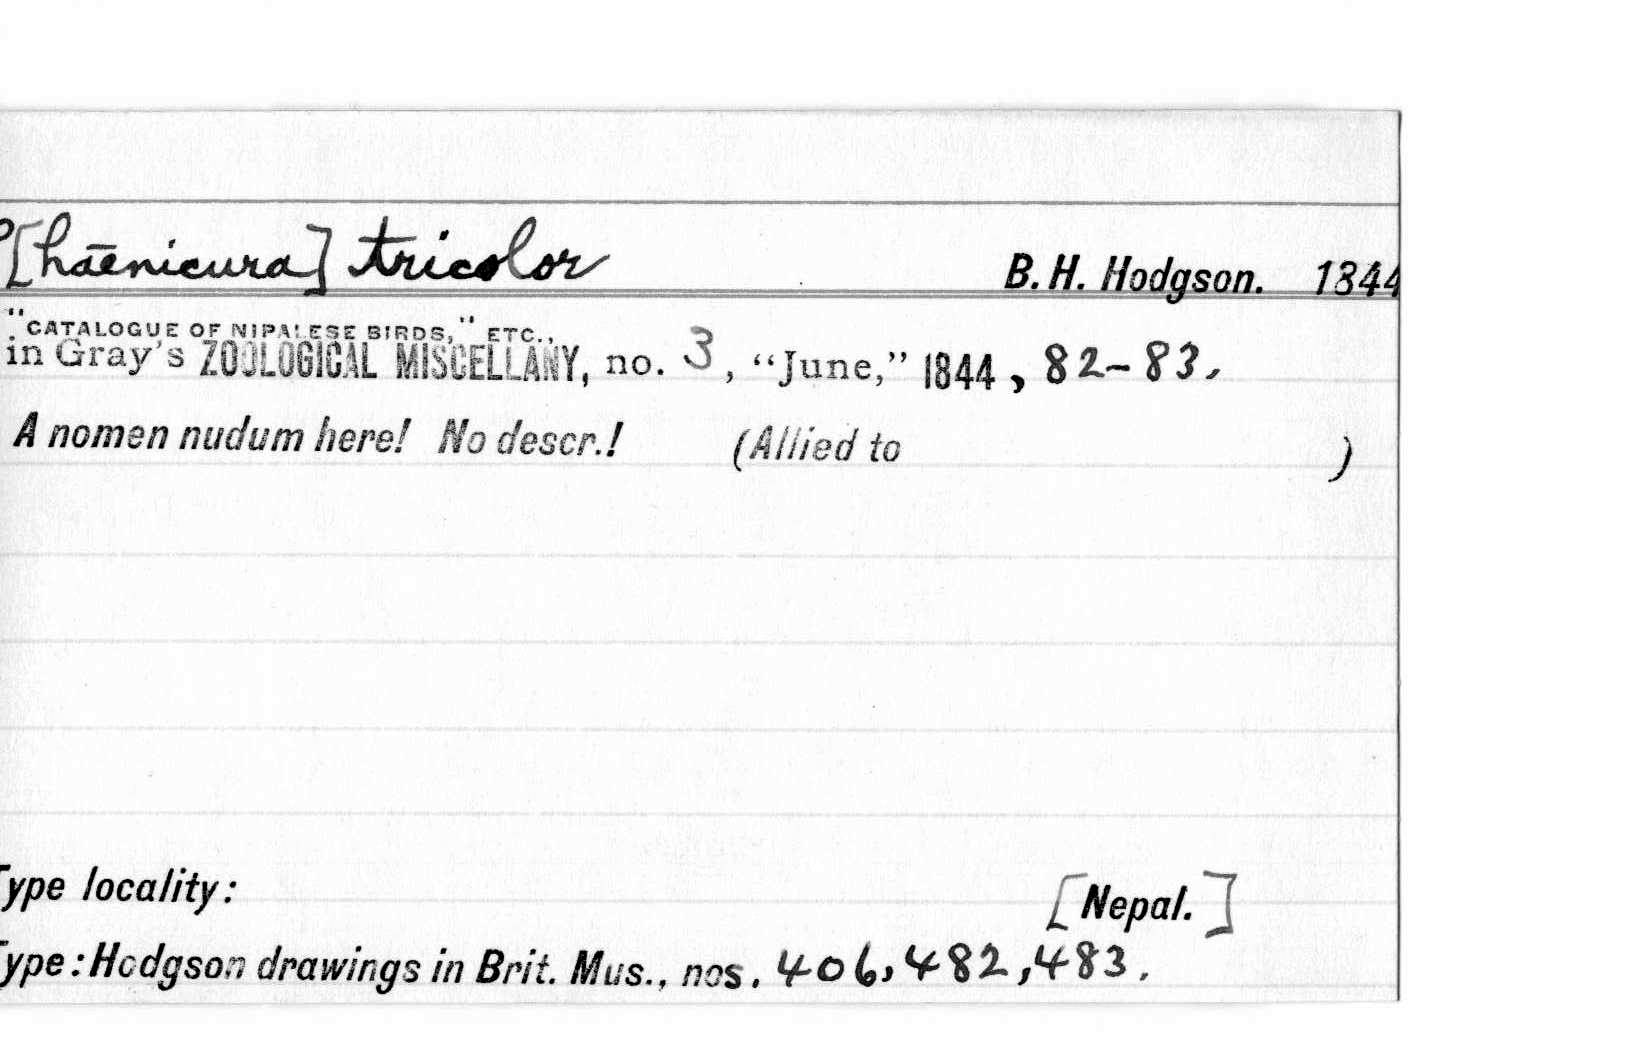 P[haenicura] tricolor B. H. Hodgson. 1844
"CATALOGUE OF NIPALESE BIRDS," ETC.,
in Gray's ZOOLOGICAL MISCELLANY, no. 3, “June,” 1844, 82-83.
A nomen nudum here! No descr.! (Allied to )
Type locality: [Nepal.]
Type: Hodgson drawings in Brit. Mus., nos. 406, 482, 483.